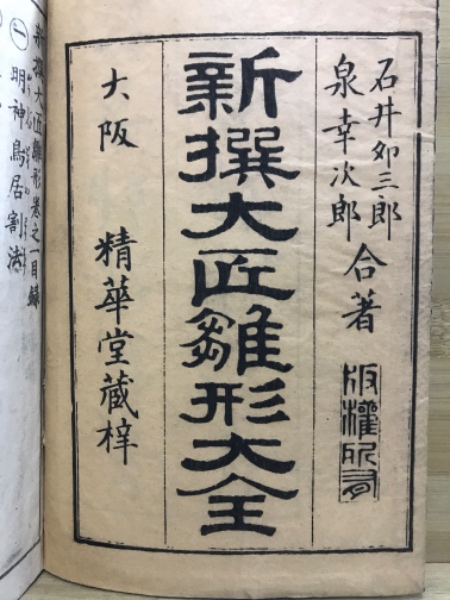 石井卯三郎
泉幸次郎
合著
版權所有
新撰大匠雛形大全
大阪 精華堂蔵梓
新撰大匠雛形卷之一目録
一 明神鳥居割法